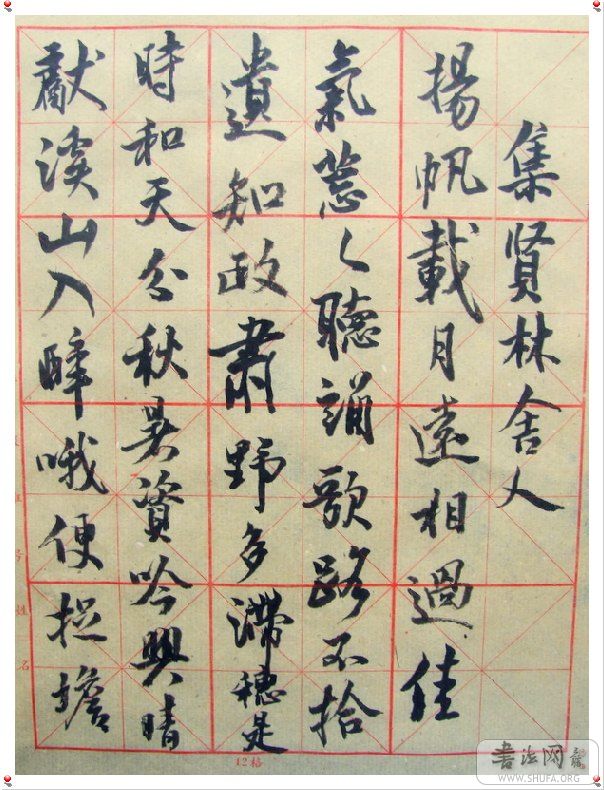 集賢林舍人
揚帆載月遠相過佳
氣葱〻聽誦歌路不拾
遺知政肅野多滯穗是
時和天分秋暑資吟興晴
獻溪山入醉哦便捉蟾
号
姓名
12格
書法网
WWW.SHUFA.ORG